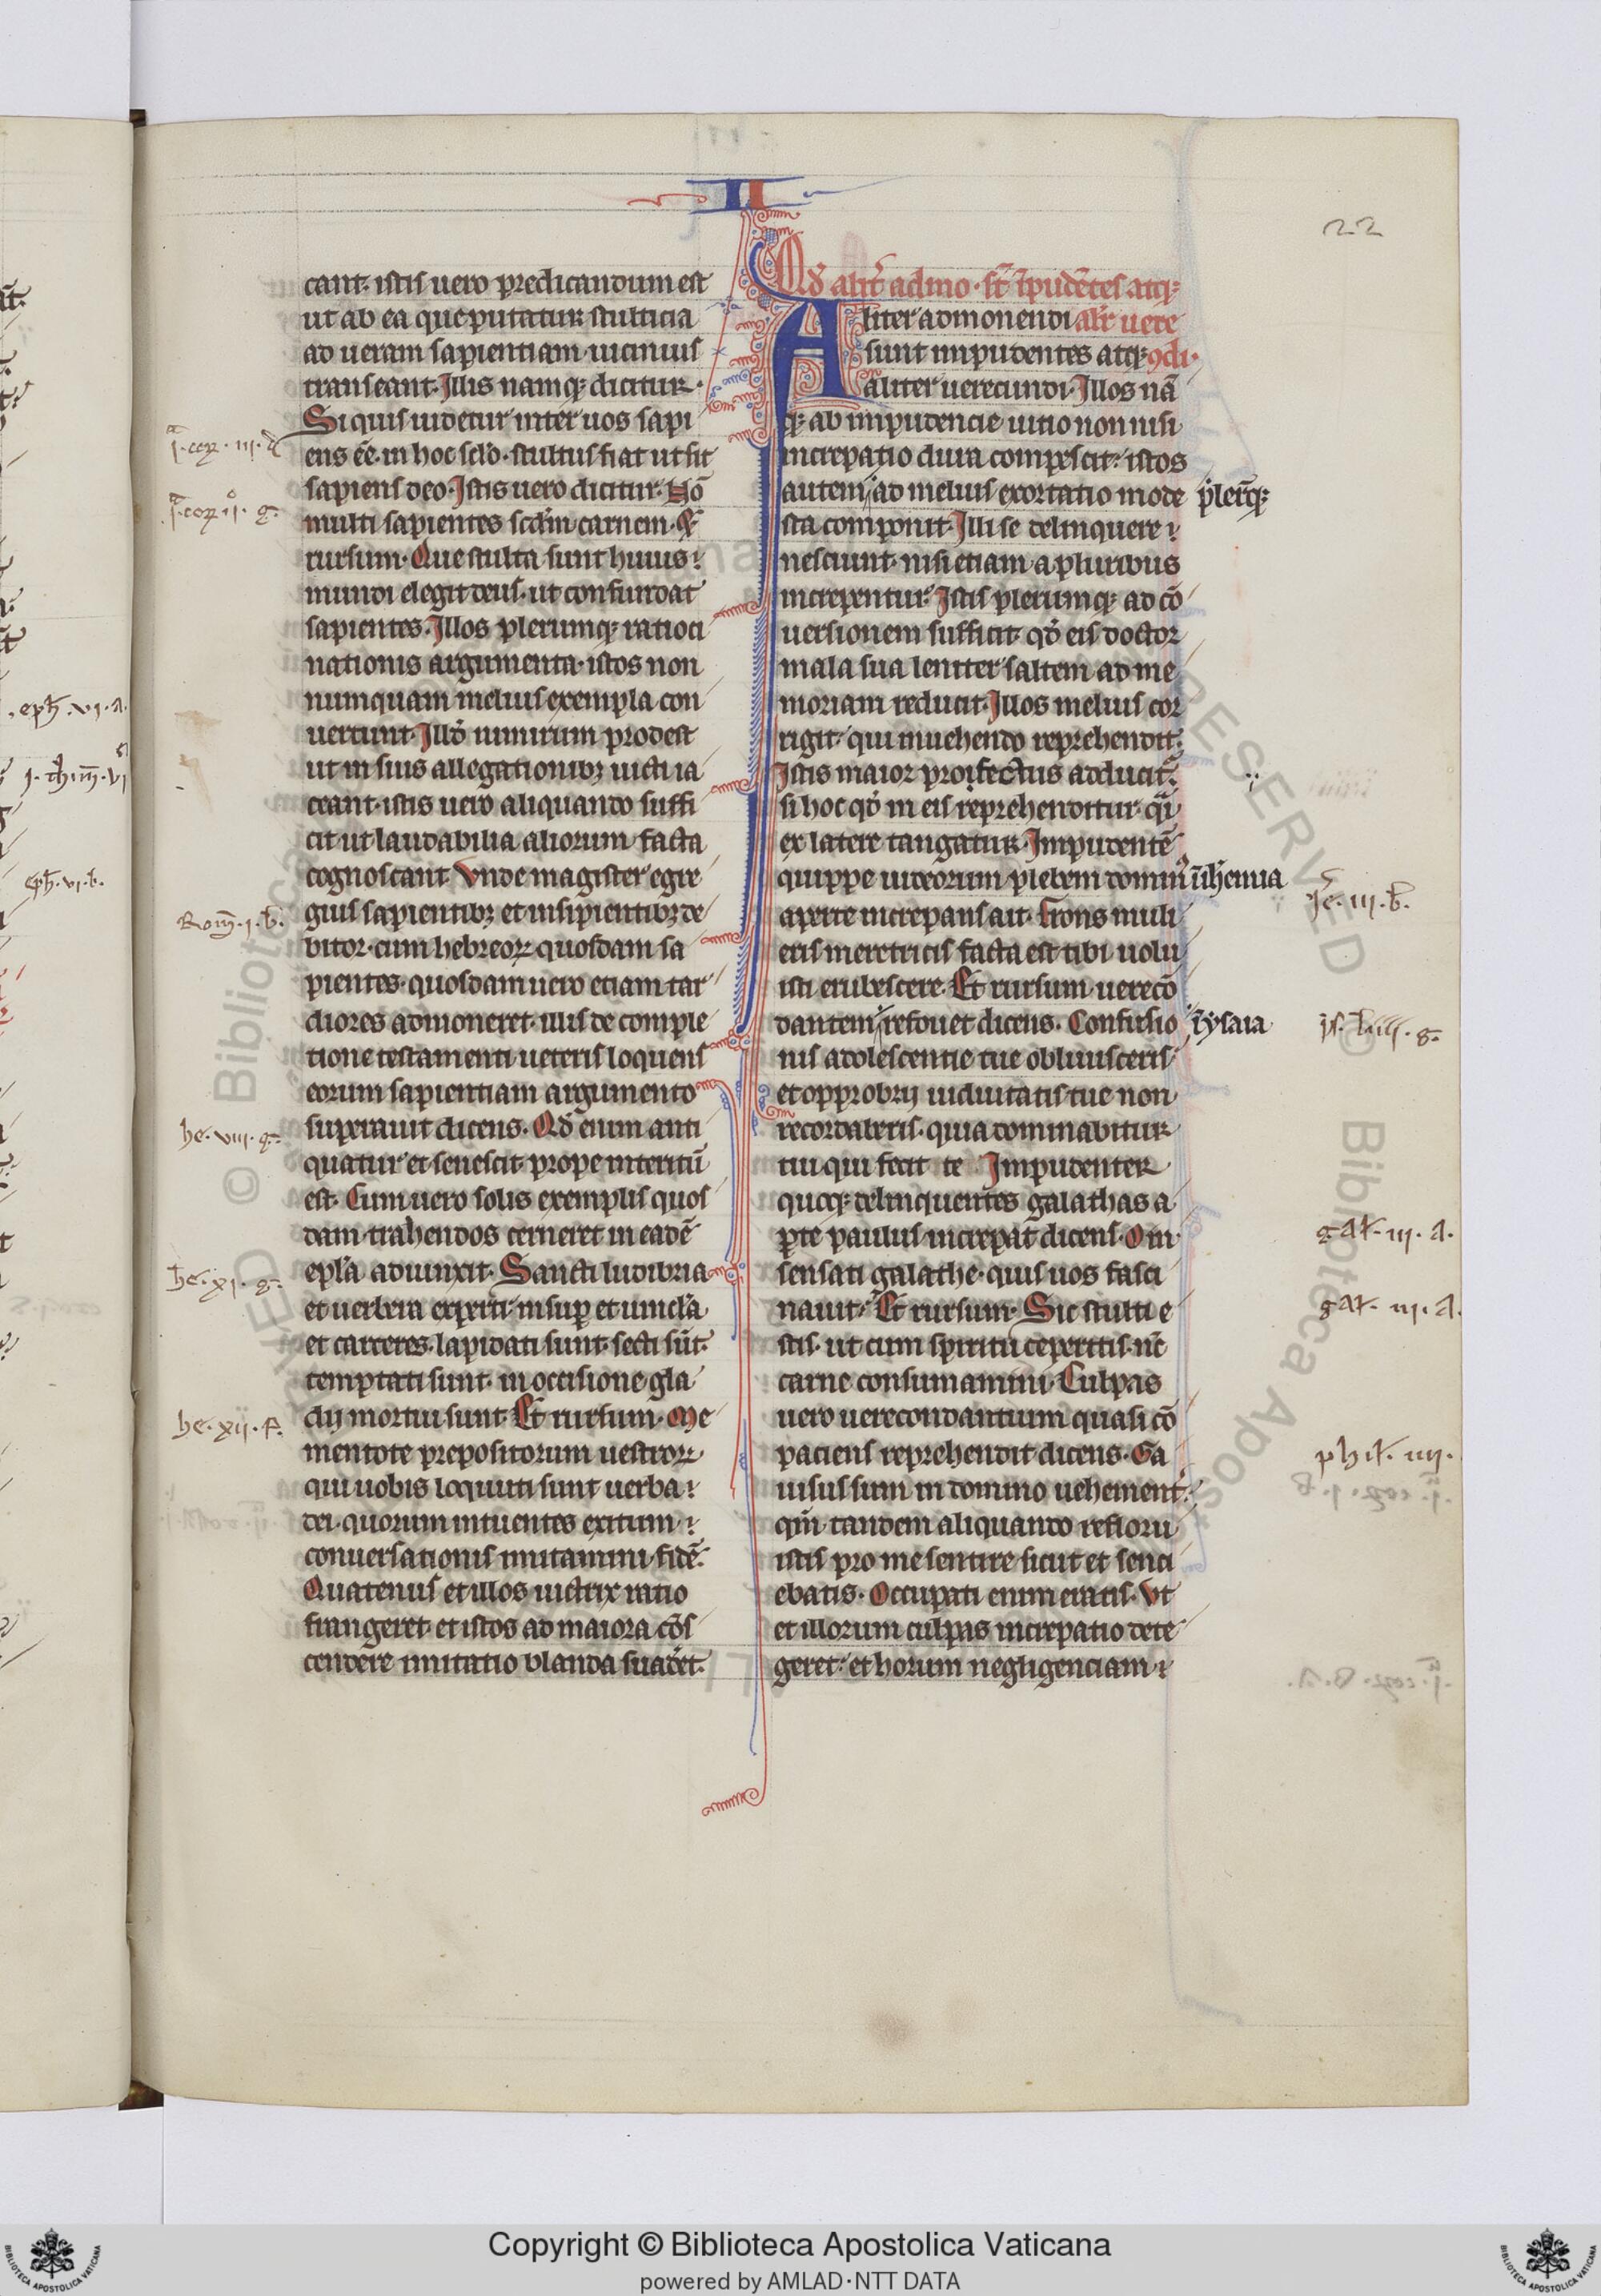 II
22
cant. istis uero predicandum est
ut ab ea que putatur stulticia
ad ueram sapientiam uicinius
transeant. Illis namq; dicitur.
Si quis uidetur inter uos sapi
ens ee͂. in hoc sclo. stultus fiat ut sit
sapiens deo. Istis uero dicitur. No͂
multi sapientes scd͂m carnem. Et
rursum. Que stulta sunt huius
mundi elegit deus. ut confundat
sapientes. Illos plerumq; ratioci
nationis argumenta. istos non
numquam melius exempla con
uertunt. Illis nimirum prodest
ut in suis allegationibꝫ uicti ia
ceant. istis uero aliquando suffi
cit ut laudabilia aliorum facta
cognoscant. Vnde magister egre
gius sapientibꝫ et insipientibꝫ de
bitor. cum hebreoꝝ quosdam sa
pientes. quosdam uero etiam tar
diores admoneret. illis de comple
tione testamenti ueteris loquens
eorum sapientiam argumento
superauit dicens. Qd͛ enim anti
quatur et senescit. prope interitu͂
est. Cum uero solis exemplis quos
dam trahendos cerneret in eade͂
epl͂a adiunxit. Sancti ludibria
et uerbera experti. insuꝑ et uincl͂a
et carceres. lapidati sunt. secti su͂t.
temptati sunt. in occisione gla
dij mortui sunt. Et rursum. Me
mentote prepositorum uestroꝝ
qui uobis locuti sunt uerba
dei. quorum intuentes exitum
conuersationis imitamini fide͂.
Quatenus et illos uictrix ratio
frangeret. et istos ad maiora co͂s
cendere imitatio blanda suaderet.
Qd͛ alit͛ admo. st͂ i͂pude͂tes atq;
Aliter admonendi alit͛ uere
sunt impudentes atq; ꝯdi.
aliter uerecundi. Illos na͂
q; ab impudencie uitio non nisi
increpatio dura compescit. istos
autem ad melius exortatio mode
plerq;
sta componit. Illi se delinquere
nesciunt. nisi etiam a pluribus
increpentur. Istis plerumq; ad co͂
uersionem sufficit. qd͛ eis doctor
mala sua leniter saltem ad me
moriam reducit. Illos melius cor
rigit. qui inuehendo reprehendit.
Istis maior profectus adducit͛.
si hoc qd͛ in eis reprehenditur. q͂i
ex latere tangatur. Impudente͂
quippe iudeorum plebem domin᷒
aperte increpans ait. Frons muli
eris meretricis facta est tibi. nolu
isti erubescere. Et rursum uereco͂
dantem refouet dicens. Confusio
i͂ ysaia
nis adolescentie tue obliuisceris.
et opprobrij uiduitatis tue non
recordaberis. quia dominabitur
tui qui fecit te Impudenter
quoq; delinquentes galathas a
ꝑte paulus increpat dicens. O in
sensati galathe. quis uos fasci
nauit. Et rursum. Sic stulti e
stis. ut cum spiritu ceperitis. nc͂
carne consumamini. Culpas
uero uerecondantium quasi co͂
paciens reprehendit dicens. Ga
uisus sum in domino uehement͛.
qm͂ tandem aliquando refloru
istis pro me sentire sicut et senti
ebatis. Occupati enim eratis. Vt
et illorum culpas increpatio dete
geret. et horum negligenciam
Rom͂. i. b.
he. viii. g.
he. xi. g.
he. xii. f.
Je. iii. b.
gal. iii. a.
gal. iii. a.
phil. iiii.
.eph. vi. a.
i. thim͂. vi
eph. vi. b.
© Biblioteca Apostolica Vaticana
ALL RIGHTS RESERVED
Copyright © Biblioteca Apostolica Vaticana
powered by AMLAD·NTT DATA
BIBLIOTECA APOSTOLICA VATICANA
BIBLIOTECA APOSTOLICA VATICANA